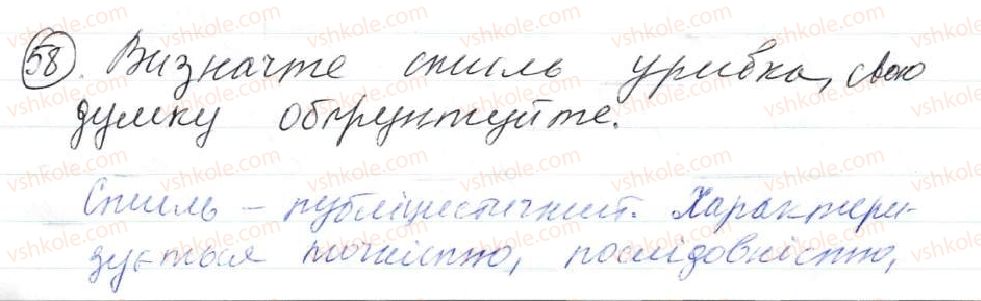 58. Визначте стиль уривка, свою
думку обґрунтуйте.
Стиль – публіцистичний. Характери-
зується точністю, послідовністю,